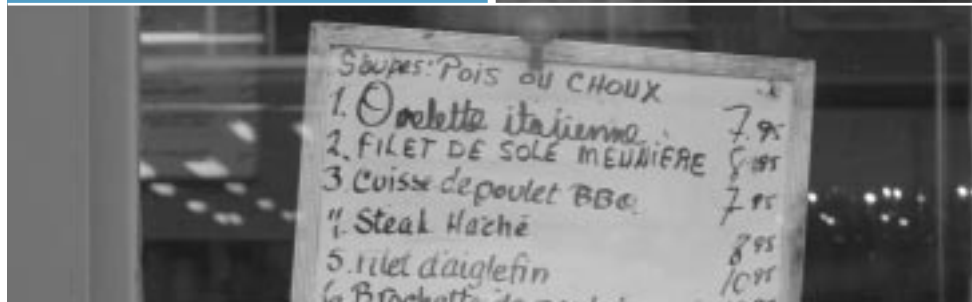 Soupes: Pois ou CHOUX
1. Omelette italienne 7.95
2. FILET DE SOLE MEUNIÈRE 8.95
3 Cuisse de poulet BBQ 7.95
4. Steak Haché 8.95
5. Filet d'aiglefin 10.95
6. Brochette de poulet